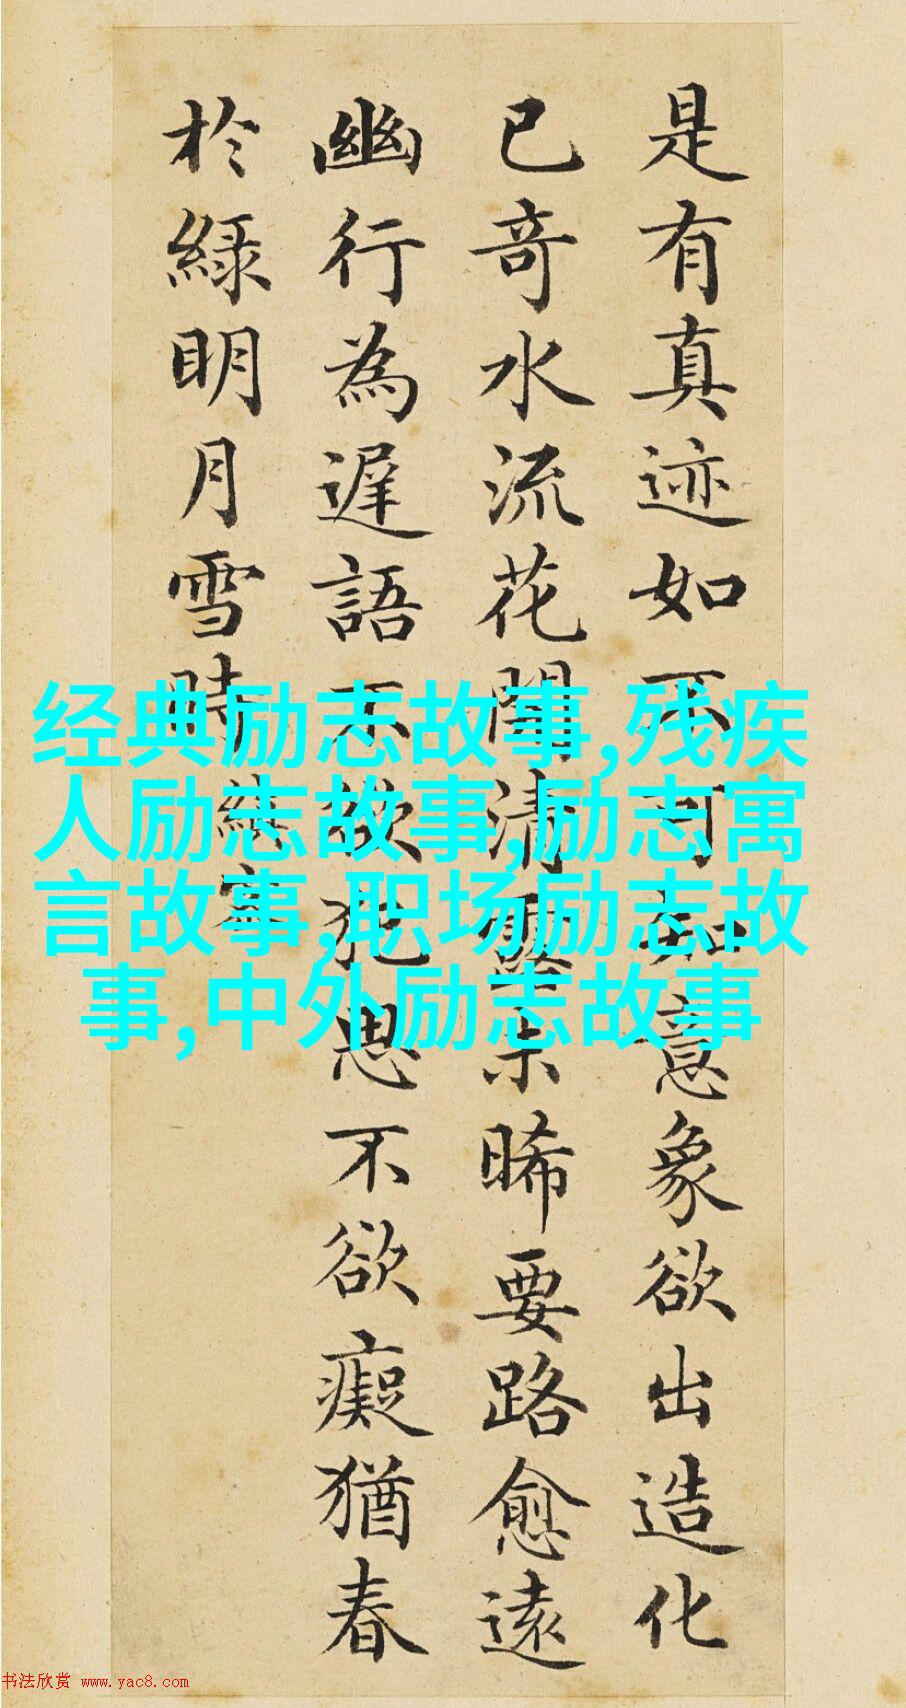 是有真迹如不可知意象欲出造化
已奇水流花開清露未晞要路愈遠
幽行為遲語不欲犯思不欲癡猶春
於綠明月雪時
縝密
经典励志故事,残疾
人励志故事,励志寓
言故事,职场励志故
事,中外励志故事
书法欣赏 www.yac8.com